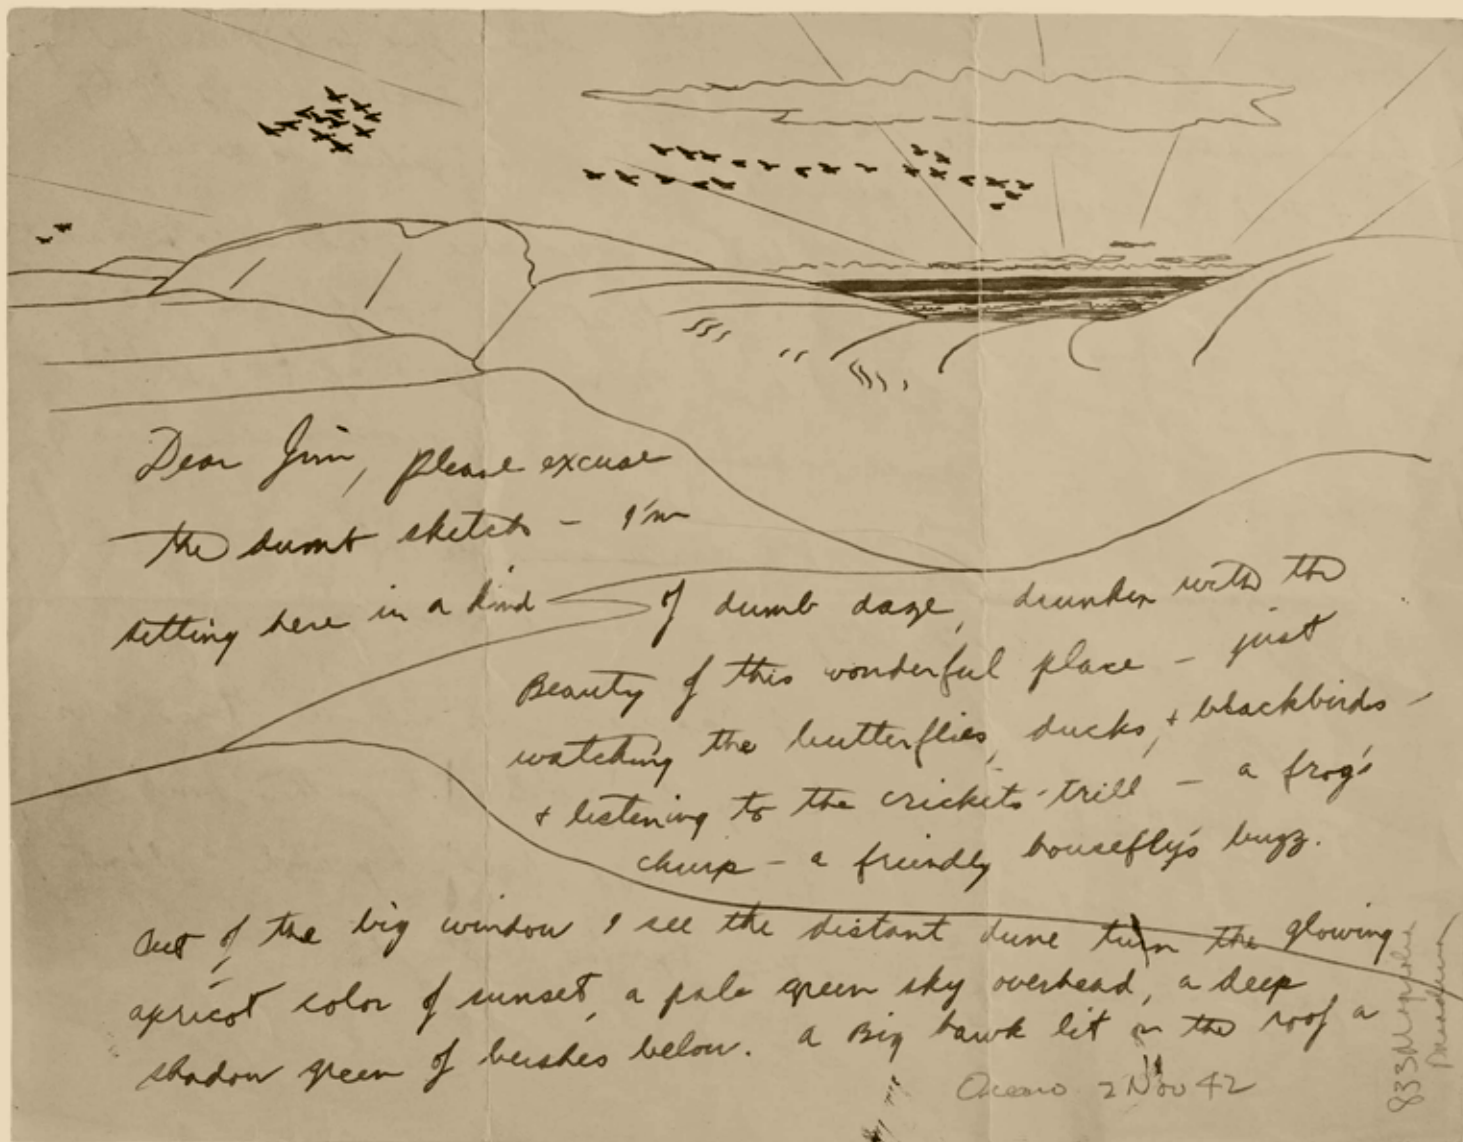 Dear Jim, please excuse
the dumb sketch – I'm
sitting here in a kind of dumb daze, drunken with the
Beauty of this wonderful place – just
watching the butterflies, ducks, + blackbirds –
+ listening to the crickets' trill – a frog's
chirp – a friendly housefly's buzz.
Out of the big window I see the distant dune turn the glowing
apricot color of sunset, a pale green sky overhead, a deep
shadow green of bushes below. A Big hawk lit on the roof a
Oceano 2 Nov 42
833 Magnolia
Pasadena